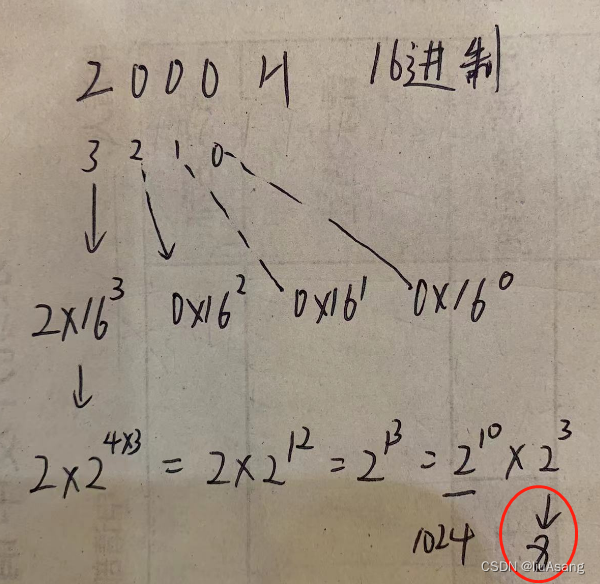 2000H 16进制
3 2 1 0
2×16³ 0×16² 0×16¹ 0×16⁰
2×2⁴ˣ³ = 2×2¹² = 2¹³ = 2¹⁰ × 2³
1024 8
CSDN @liuAsang